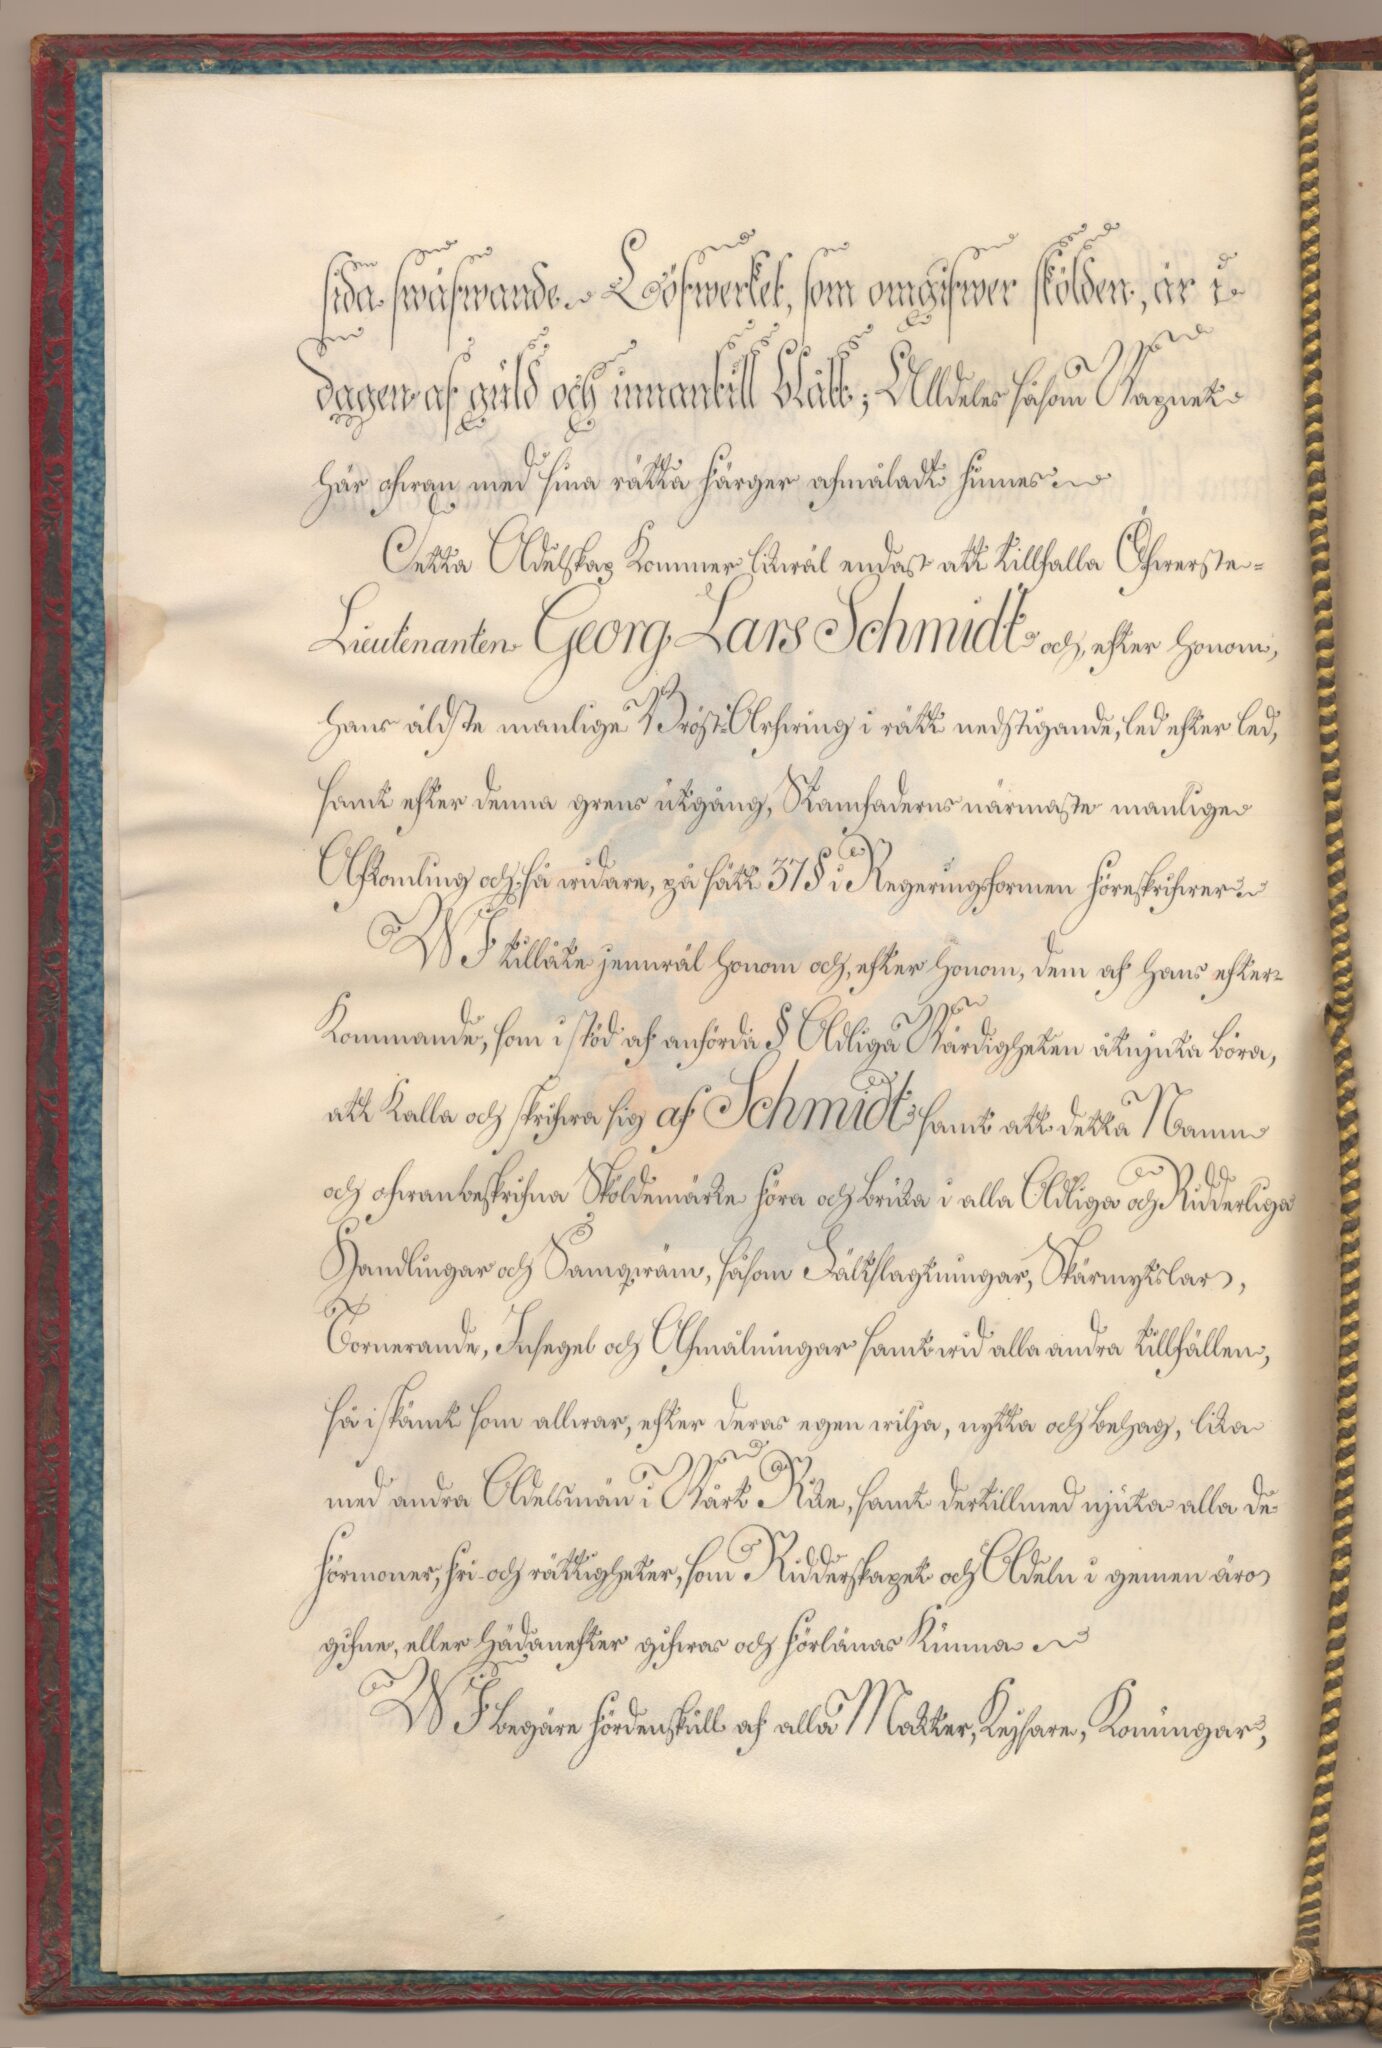 sida swäfwande. Löfwerket, som omgifwer skölden, är i
dagen af guld och innantill blått; Alldeles såsom Wapnet
här ofwan med sina rätta färger afmåladt finnes.
Detta Adelskap kommer likwäl endast att tillfalla Öfwerste-
Lieutenanten Georg Lars Schmidt och, efter honom,
hans äldste manlige Bröst-Arfwing i rätt nedstigande, led efter led,
samt efter denna grens utgång, Stamfaderns närmaste manlige
Afkomling och så widare, på sätt 37 § i Regeringsformen föreskrifwer.
WI tillåte jemwäl honom och, efter honom, dem af hans efter-
kommande, som i stöd af anförda § Adliga Wärdigheten åtnjuta böra,
att kalla och skrifwa sig af Schmidt samt att detta Namn
och ofwanbeskrifna Sköldemärke föra och bruka i alla Adliga och Ridderliga
Handlingar och Samqwäm, såsom Fältslagtningar, Skärmytslar,
Tornerande, Insegel och Afmålningar samt wid alla andra tillfällen,
så i skämt som allwar, efter deras egen wilja, nytta och behag, lika
med andra Adelsmän i Wårt Rike, samt dertillmed njuta alla de
förmoner, fri- och rättigheter, som Ridderskapet och Adeln i gemen äro
gifne, eller hädanefter gifwas och förlänas kunna.
WI begäre fördenskull af alla Makter, Kejsare, Konungar,